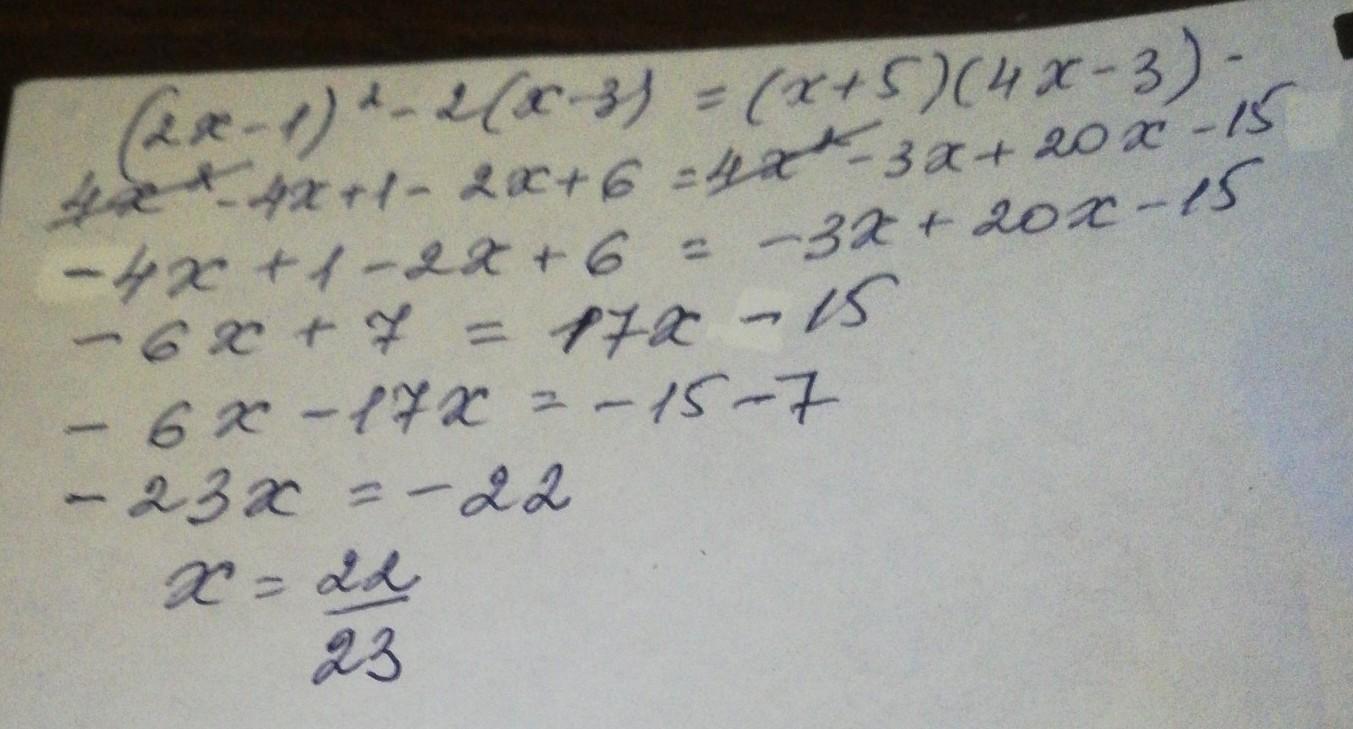 (2x-1)² - 2(x-3) = (x+5)(4x-3) -
4x² - 4x + 1 - 2x + 6 = 4x² - 3x + 20x - 15
- 4x + 1 - 2x + 6 = - 3x + 20x - 15
- 6x + 7 = 17x - 15
- 6x - 17x = - 15 - 7
- 23x = - 22
x = 22/23